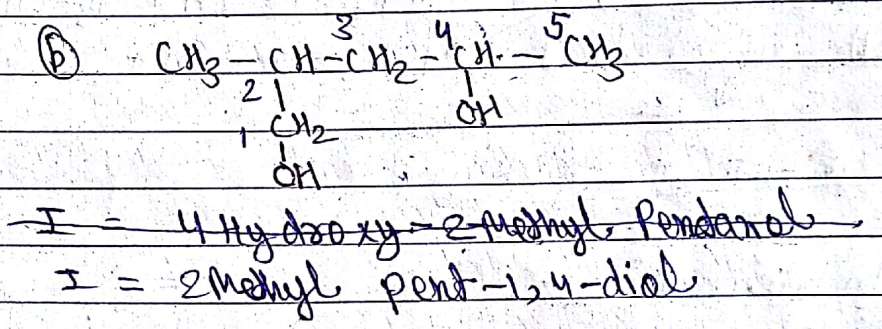 (b) CH3 - CH - CH2 - CH - CH3
3 4 5
2
1 CH2 OH
OH
I = 4 Hydroxy - 2 Methyl Pentanol
I = 2 Methyl pent - 1, 4 - diol